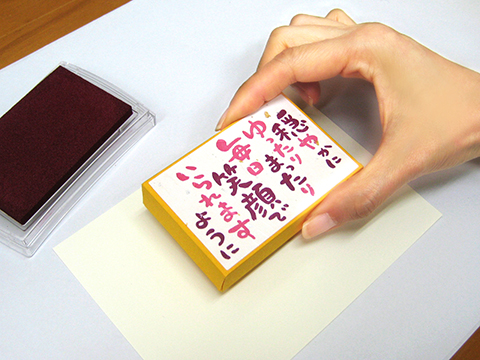 穏やかに
ゆったりまったり
毎日笑顔で
いられます
ように